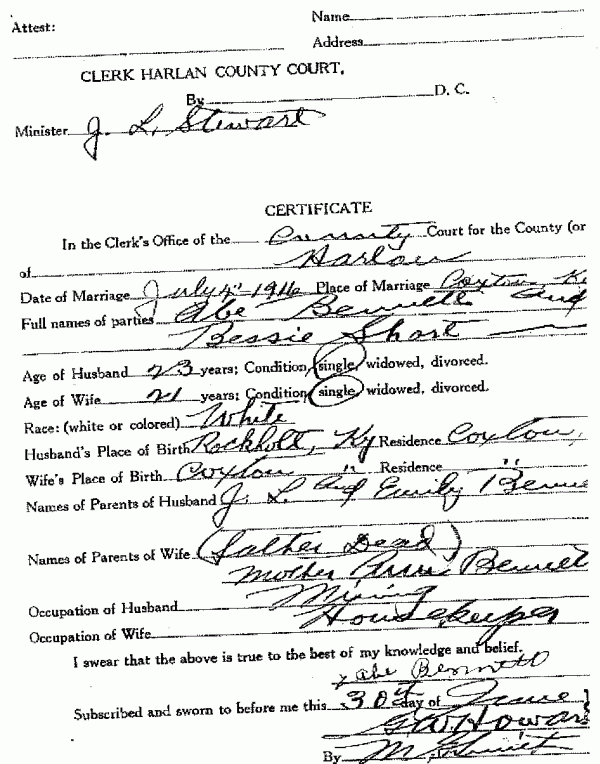 Attest:
Name
Address
CLERK HARLAN COUNTY COURT.
By D. C.
Minister J. L. Stewart
CERTIFICATE
In the Clerk's Office of the County Court for the County (or
of Harlan
Date of Marriage July 4" 1916 Place of Marriage Coxton, Ky
Full names of parties Abe Bennett and
Bessie Short
Age of Husband 23 years; Condition (single, widowed, divorced.
Age of Wife 21 years; Condition (single, widowed, divorced.
Race: (white or colored) White
Husband's Place of Birth Rockholt, Ky Residence Coxton,
Wife's Place of Birth Coxton " Residence "
Names of Parents of Husband J. L. and Emily Benne
Names of Parents of Wife (father Dead)
Mother Ann Bennet
Occupation of Husband Mining
Occupation of Wife Housekeeper
I swear that the above is true to the best of my knowledge and belief.
x Abe Bennett
Subscribed and sworn to before me this 30th day of June
G.W. Howar
By M.